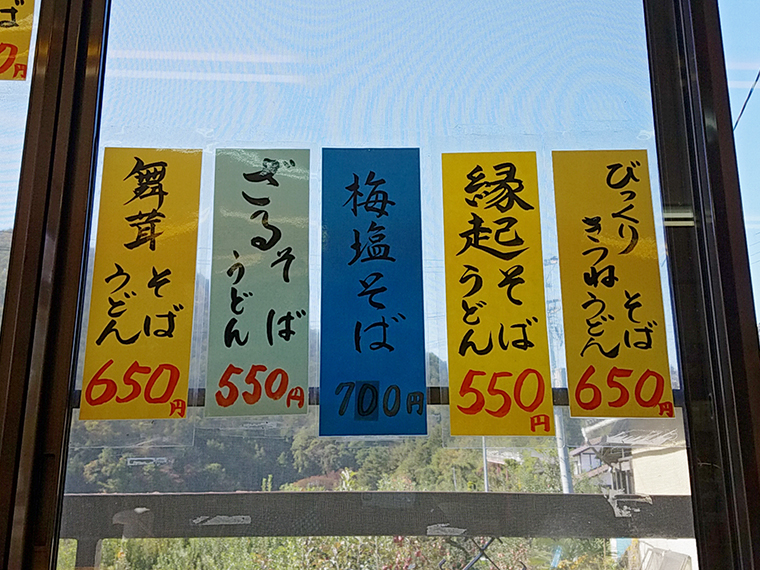 びっくり
きつね
そば
うどん
650円
縁起
そば
うどん
550円
梅塩そば
700円
ざる
そば
うどん
550円
舞茸
そば
うどん
650円
ば
0円